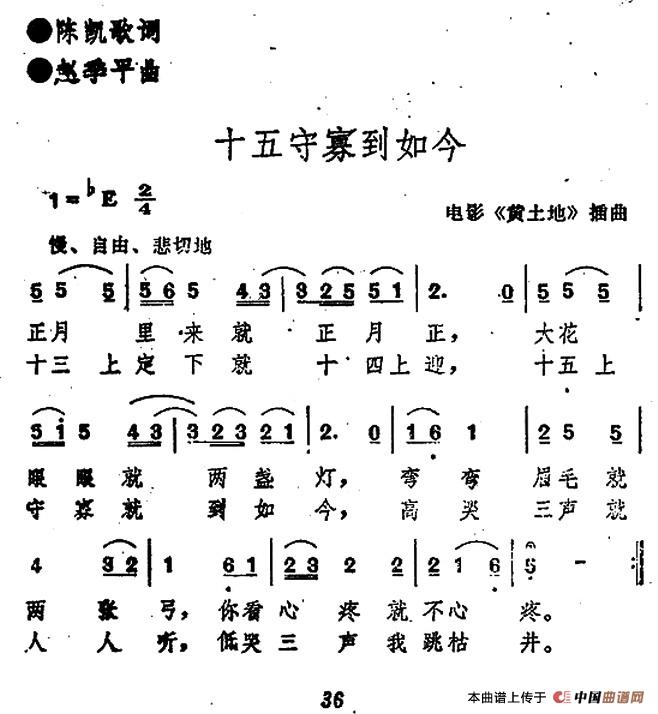 ●陈凯歌词
●赵季平曲
十五守寡到如今
1=♭E 2/4
电影《黄土地》插曲
慢、自由、悲切地
5 5 5 | 5 6 5 4 3 | 3 2 5 5 1 | 2. 0 | 5 5 5 |
正月 里来就 正月正， 大花
十三 上定下就 十四上迎， 十五上
5 i 5 4 3 | 3 2 3 2 1 | 2. 0 | 1 6 1 | 2 5 5 |
眼眼就 两盏灯， 弯弯 眉毛就
守寡就 到如今， 高哭 三声就
4 3 2 | 1 6 1 | 2 3 2 2 | 2 1 6 | 5 - :||
两张弓， 你看心疼就不心疼。
人人听， 低哭三声我跳枯井。
36
本曲谱上传于 中国曲谱网